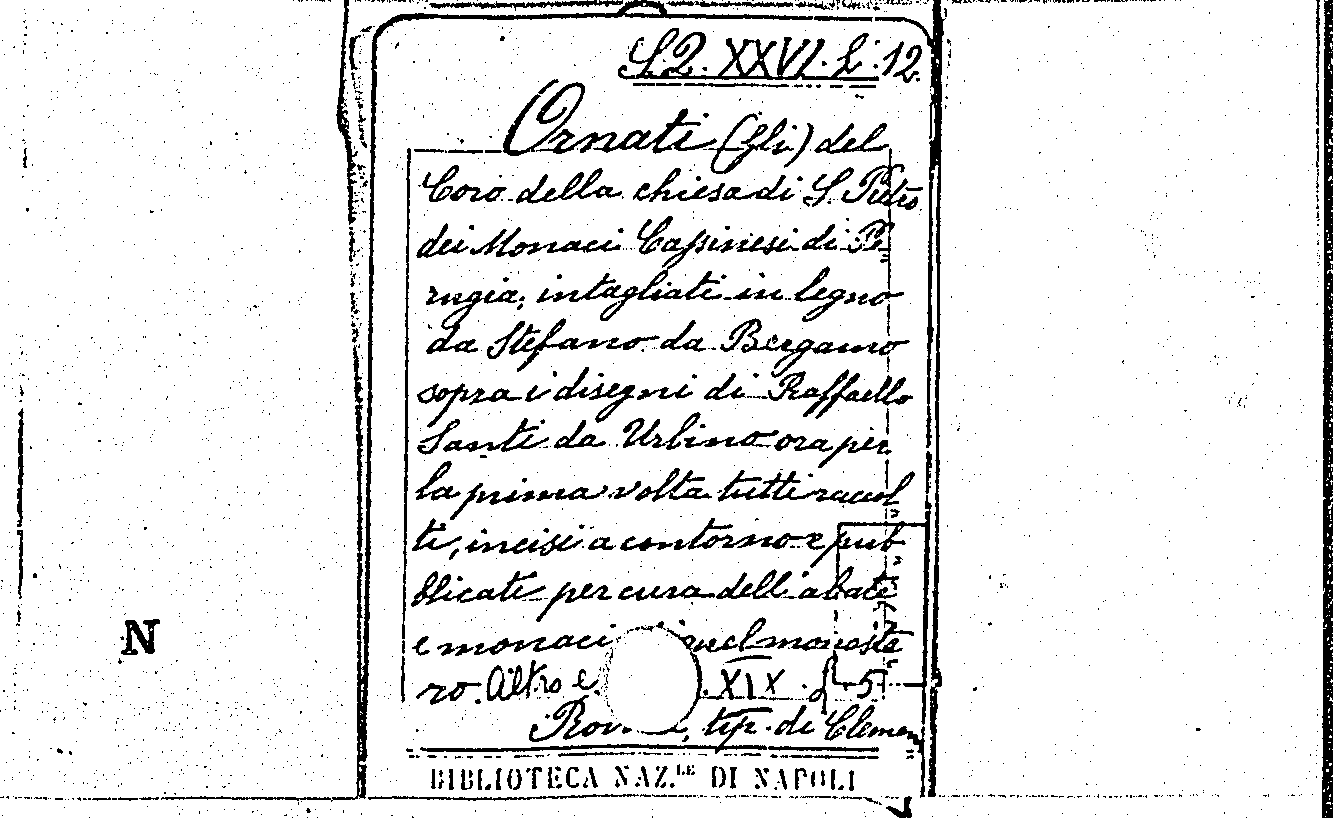 S.Q. XXVI. L. 12.
Ornati (Gli) del
Coro della chiesa di S. Pietro
dei Monaci Cassinesi di Pe=
rugia, intagliati in legno
da Stefano da Bergamo
sopra i disegni di Raffaello
Santi da Urbino ora per
la prima volta tutti raccol=
ti, incisi a contorno e pub=
blicati per cura dell'abate
e monaci quel moniste=
ro. Altro e. XIX. 5
Rom, tip. di Clemen
BIBLIOTECA NAZ.LE DI NAPOLI
N